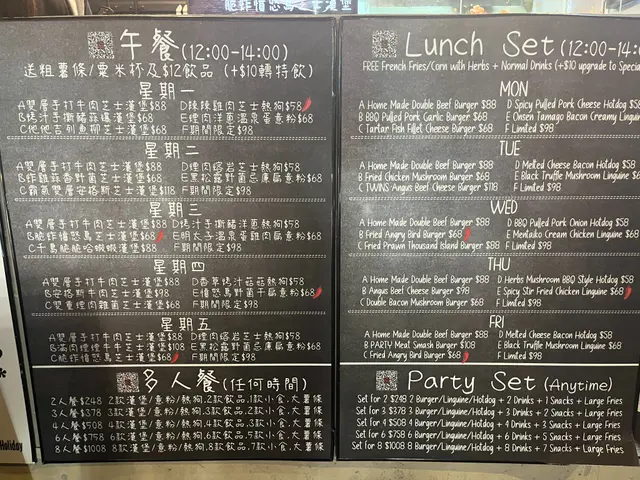 午餐(12:00-14:00)
送粗薯條/粟米杯及$12飲品 (+$10轉特飲)
星期一
A雙層手打牛肉芝士漢堡$88 D辣辣雞肉芝士熱狗$58
B烤汁手撕豬蒜磯漢堡$68 E煙肉洋蔥溫泉蛋意粉$68
C他他吉列魚柳芝士漢堡$68 F期間限定$98
星期二
A雙層手打牛肉芝士漢堡$88 D煙肉熔岩芝士熱狗$58
B炸雞蒜香野菌芝士漢堡$68 E黑松露野菌忌廉扁意粉$68
C霸氣雙層安格斯芝士漢堡$118 F期間限定$98
星期三
A雙層手打牛肉芝士漢堡$88 D烤汁手撕豬洋蔥熱狗$58
B脆炸憤怒鳥芝士漢堡$68 E明太溫泉蛋雞肉扁意粉$68
C千島脆脆哈蝦蝦漢堡$88 F期間限定$98
星期四
A雙層手打牛肉芝士漢堡$88 D香草烤汁菇菇熱狗$58
B安格斯牛肉芝士漢堡$98 E憤怒鳥野菌干扁意粉$68
C雙重煙肉雜菌芝士漢堡$68 F期間限定$98
星期五
A雙層手打牛肉芝士漢堡$88 D煙肉熔岩芝士熱狗$58
B滿肉煙煙牛肉芝士堡$108 E黑松露野菌忌廉扁意粉$68
C脆炸憤怒鳥芝士漢堡$68 F期間限定$98
多人餐(任何時間)
2人餐$248 2款漢堡/意粉/熱狗,2款飲品,1款小食,大薯條
3人餐$378 3款漢堡/意粉/熱狗,3款飲品,2款小食,大薯條
4人餐$508 4款漢堡/意粉/熱狗,4款飲品,3款小食,大薯條
6人餐$758 6款漢堡/意粉/熱狗,6款飲品,5款小食,大薯條
8人餐$1008 8款漢堡/意粉/熱狗,8款飲品,7款小食,大薯條
Holiday
Lunch Set (12:00-14:
FREE French Fries/Corn with Herbs + Normal Drinks (+$10 upgrade to Specia
MON
A Home Made Double Beef Burger $88 D Spicy Pulled Pork Cheese Hotdog $5
B BBQ Pulled Pork Garlic Burger $68 E Onsen Tamago Bacon Creamy Lingui
C Tartar Fish Fillet Cheese Burger $68 F Limited $98
TUE
A Home Made Double Beef Burger $88 D Melted Cheese Bacon Hotdog $58
B Fried Chicken Mushroom Burger $68 E Black Truffle Mushroom Linguine $6
C TWINS Angus Beef Cheese Burger $118 F Limited $98
WED
A Home Made Double Beef Burger $88 D BBQ Pulled Pork Onion Hotdog $58
B Fried Angry Bird Burger $68 E Mentaiko Cream Chicken Linguine $68
C Fried Prawn Thousand Island Burger $88 F Limited $98
THU
A Home Made Double Beef Burger $88 D Herbs Mushroom BBQ Style Hotdog $58
B Angus Beef Cheese Burger $98 E Spicy Stir Fried Chicken Linguine $68
C Double Bacon Mushroom Burger $68 F Limited $98
FRI
A Home Made Double Beef Burger $88 D Melted Cheese Bacon Hotdog $58
B PARTY Meat Smash Burger $108 E Black Truffle Mushroom Linguine $68
C Fried Angry Bird Burger $68 F Limited $98
Party Set (Anytime)
Set for 2 $248 2 Burger/Linguine/Hotdog + 2 Drinks + 1 Snacks + Large Fries
Set for 3 $378 3 Burger/Linguine/Hotdog + 3 Drinks + 2 Snacks + Large Fries
Set for 4 $508 4 Burger/Linguine/Hotdog + 4 Drinks + 3 Snacks + Large Fries
Set for 6 $758 6 Burger/Linguine/Hotdog + 6 Drinks + 5 Snacks + Large Fries
Set for 8 $1008 8 Burger/Linguine/Hotdog + 8 Drinks + 7 Snacks + Large Fries